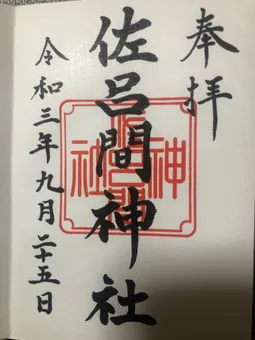 奉拝
佐呂間神社
令和三年九月二十五日
佐呂間神社